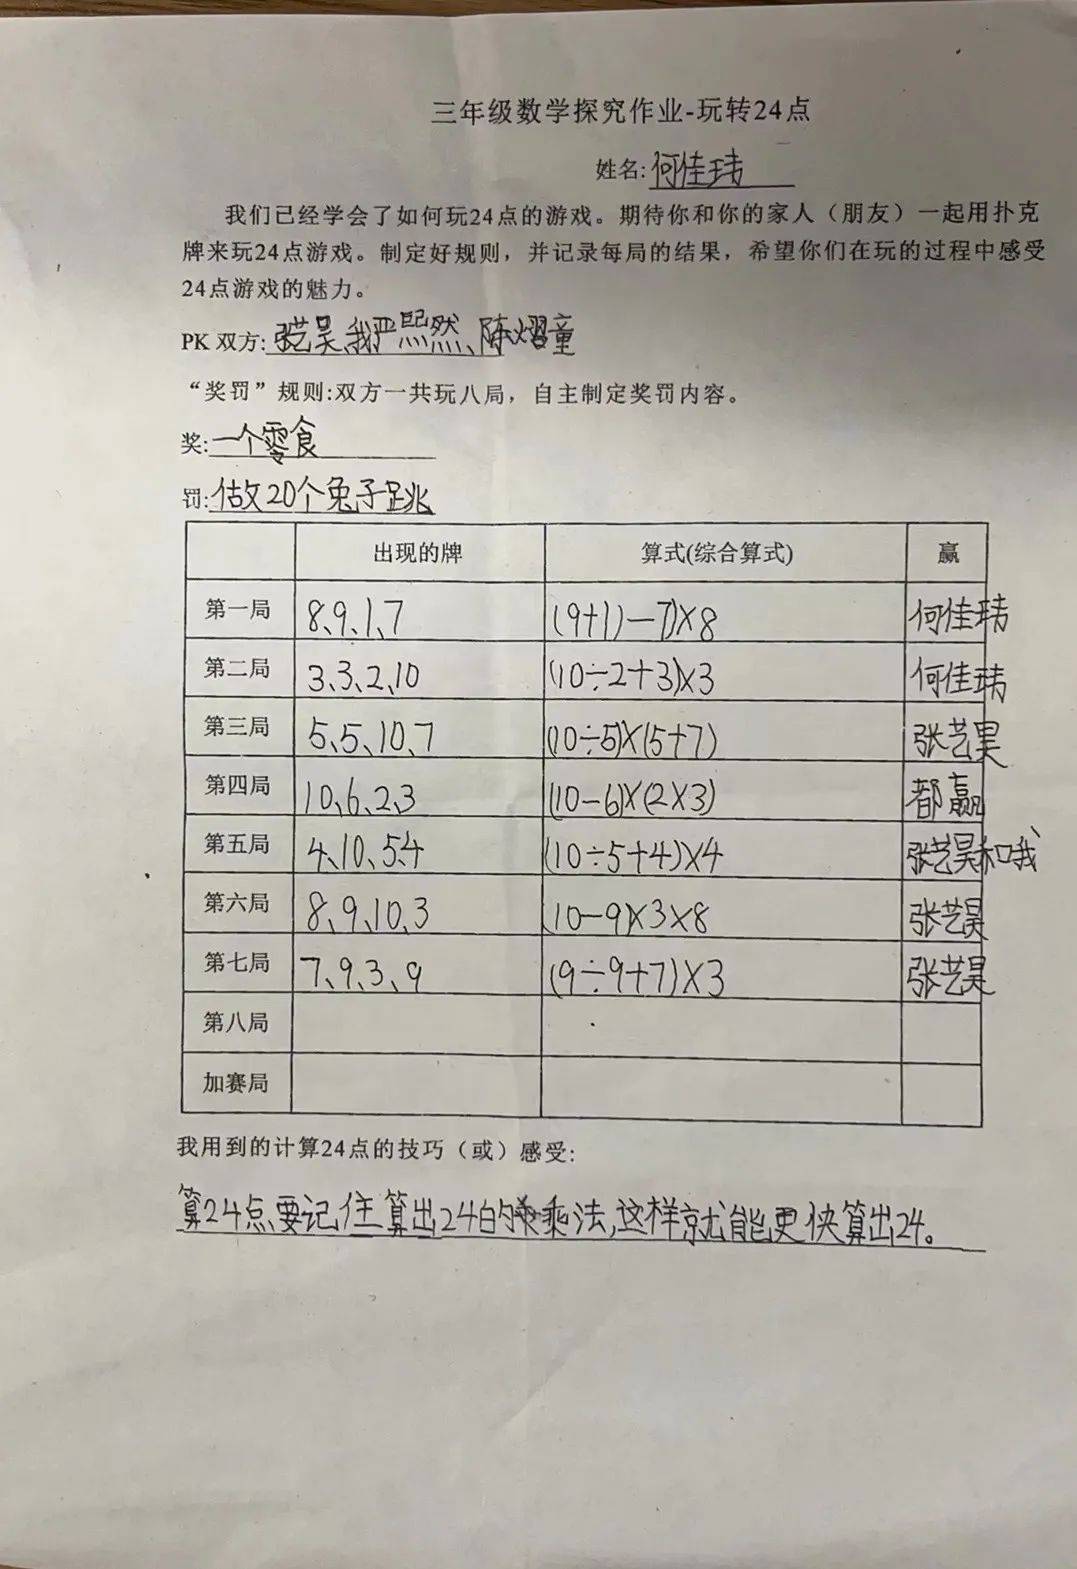 三年级数学探究作业-玩转24点
姓名:何佳玮
我们已经学会了如何玩24点的游戏。期待你和你的家人（朋友）一起用扑克
牌来玩24点游戏。制定好规则，并记录每局的结果，希望你们在玩的过程中感受
24点游戏的魅力。
PK 双方:张艺昊、我严熙然、陈熠童
“奖罚”规则:双方一共玩八局，自主制定奖罚内容。
奖:一个零食
罚:做20个兔子跳
出现的牌 算式(综合算式) 赢
第一局 8、9、1、7 (9+1)-7)×8 何佳玮
第二局 3、3、2、10 (10÷2+3)×3 何佳玮
第三局 5、5、10、7 (10÷5)×(5+7) 张艺昊
第四局 10、6、2、3 (10-6)×(2×3) 都赢
第五局 4、10、5、4 (10÷5+4)×4 张艺昊和我
第六局 8、9、10、3 (10-9)×3×8 张艺昊
第七局 7、9、3、9 (9÷9+7)×3 张艺昊
第八局
加赛局
我用到的计算24点的技巧（或）感受:
算24点要记住算出24的乘法,这样就能更快算出24。